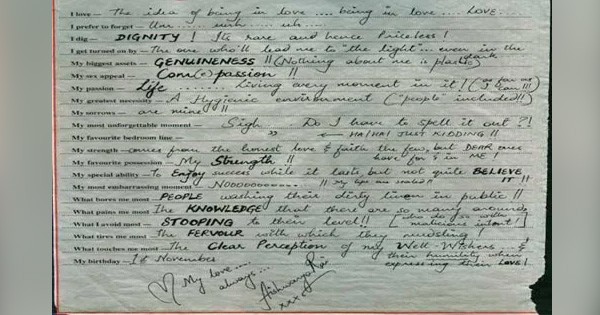 I love — The idea of being in love .... being in love .... LOVE
I prefer to forget — Umr ..... umh ..... uh....
I dig — DIGNITY ! Its rare and hence Priceless !
I get turned on by — The one who'll lead me to "the light"... even in the dark
My biggest assets — GENUINENESS !! (Nothing about me is plastic)
My sex appeal — Com(e)passion !!
My passion — Life ........ Living every moment in it! (as far as I can!!!)
My greatest necessity — A Hygienic environment ("people" included!!)
My sorrows — are mine !!
My most unforgettable moment — Sigh.... Do I have to spell it out ?!
My favourite bedroom line — " ← HA! HA! JUST KIDDING !!
My strength — arises from the honest love & faith the few, but DEAR ones have for & in ME !
My favourite possession — My Strength !!
My special ability — To Enjoy success while it lasts but not quite BELIEVE IT !!
My most embarrassing moment — NOOOOOOOO..... !! My lips are sealed !!
What bores me most — PEOPLE washing their dirty linen in public !!
What pains me most — The KNOWLEDGE that there are so many around who do so with malicious intent!
What I avoid most — STOOPING to their level !!
What tires me most — The FERVOUR with which they needling !
What touches me most — The Clear Perception of my Well-Wishers ... & their humility when expressing their LOVE !
My birthday — 1st November
My love....
always...
Aishwarya Rai
xxx